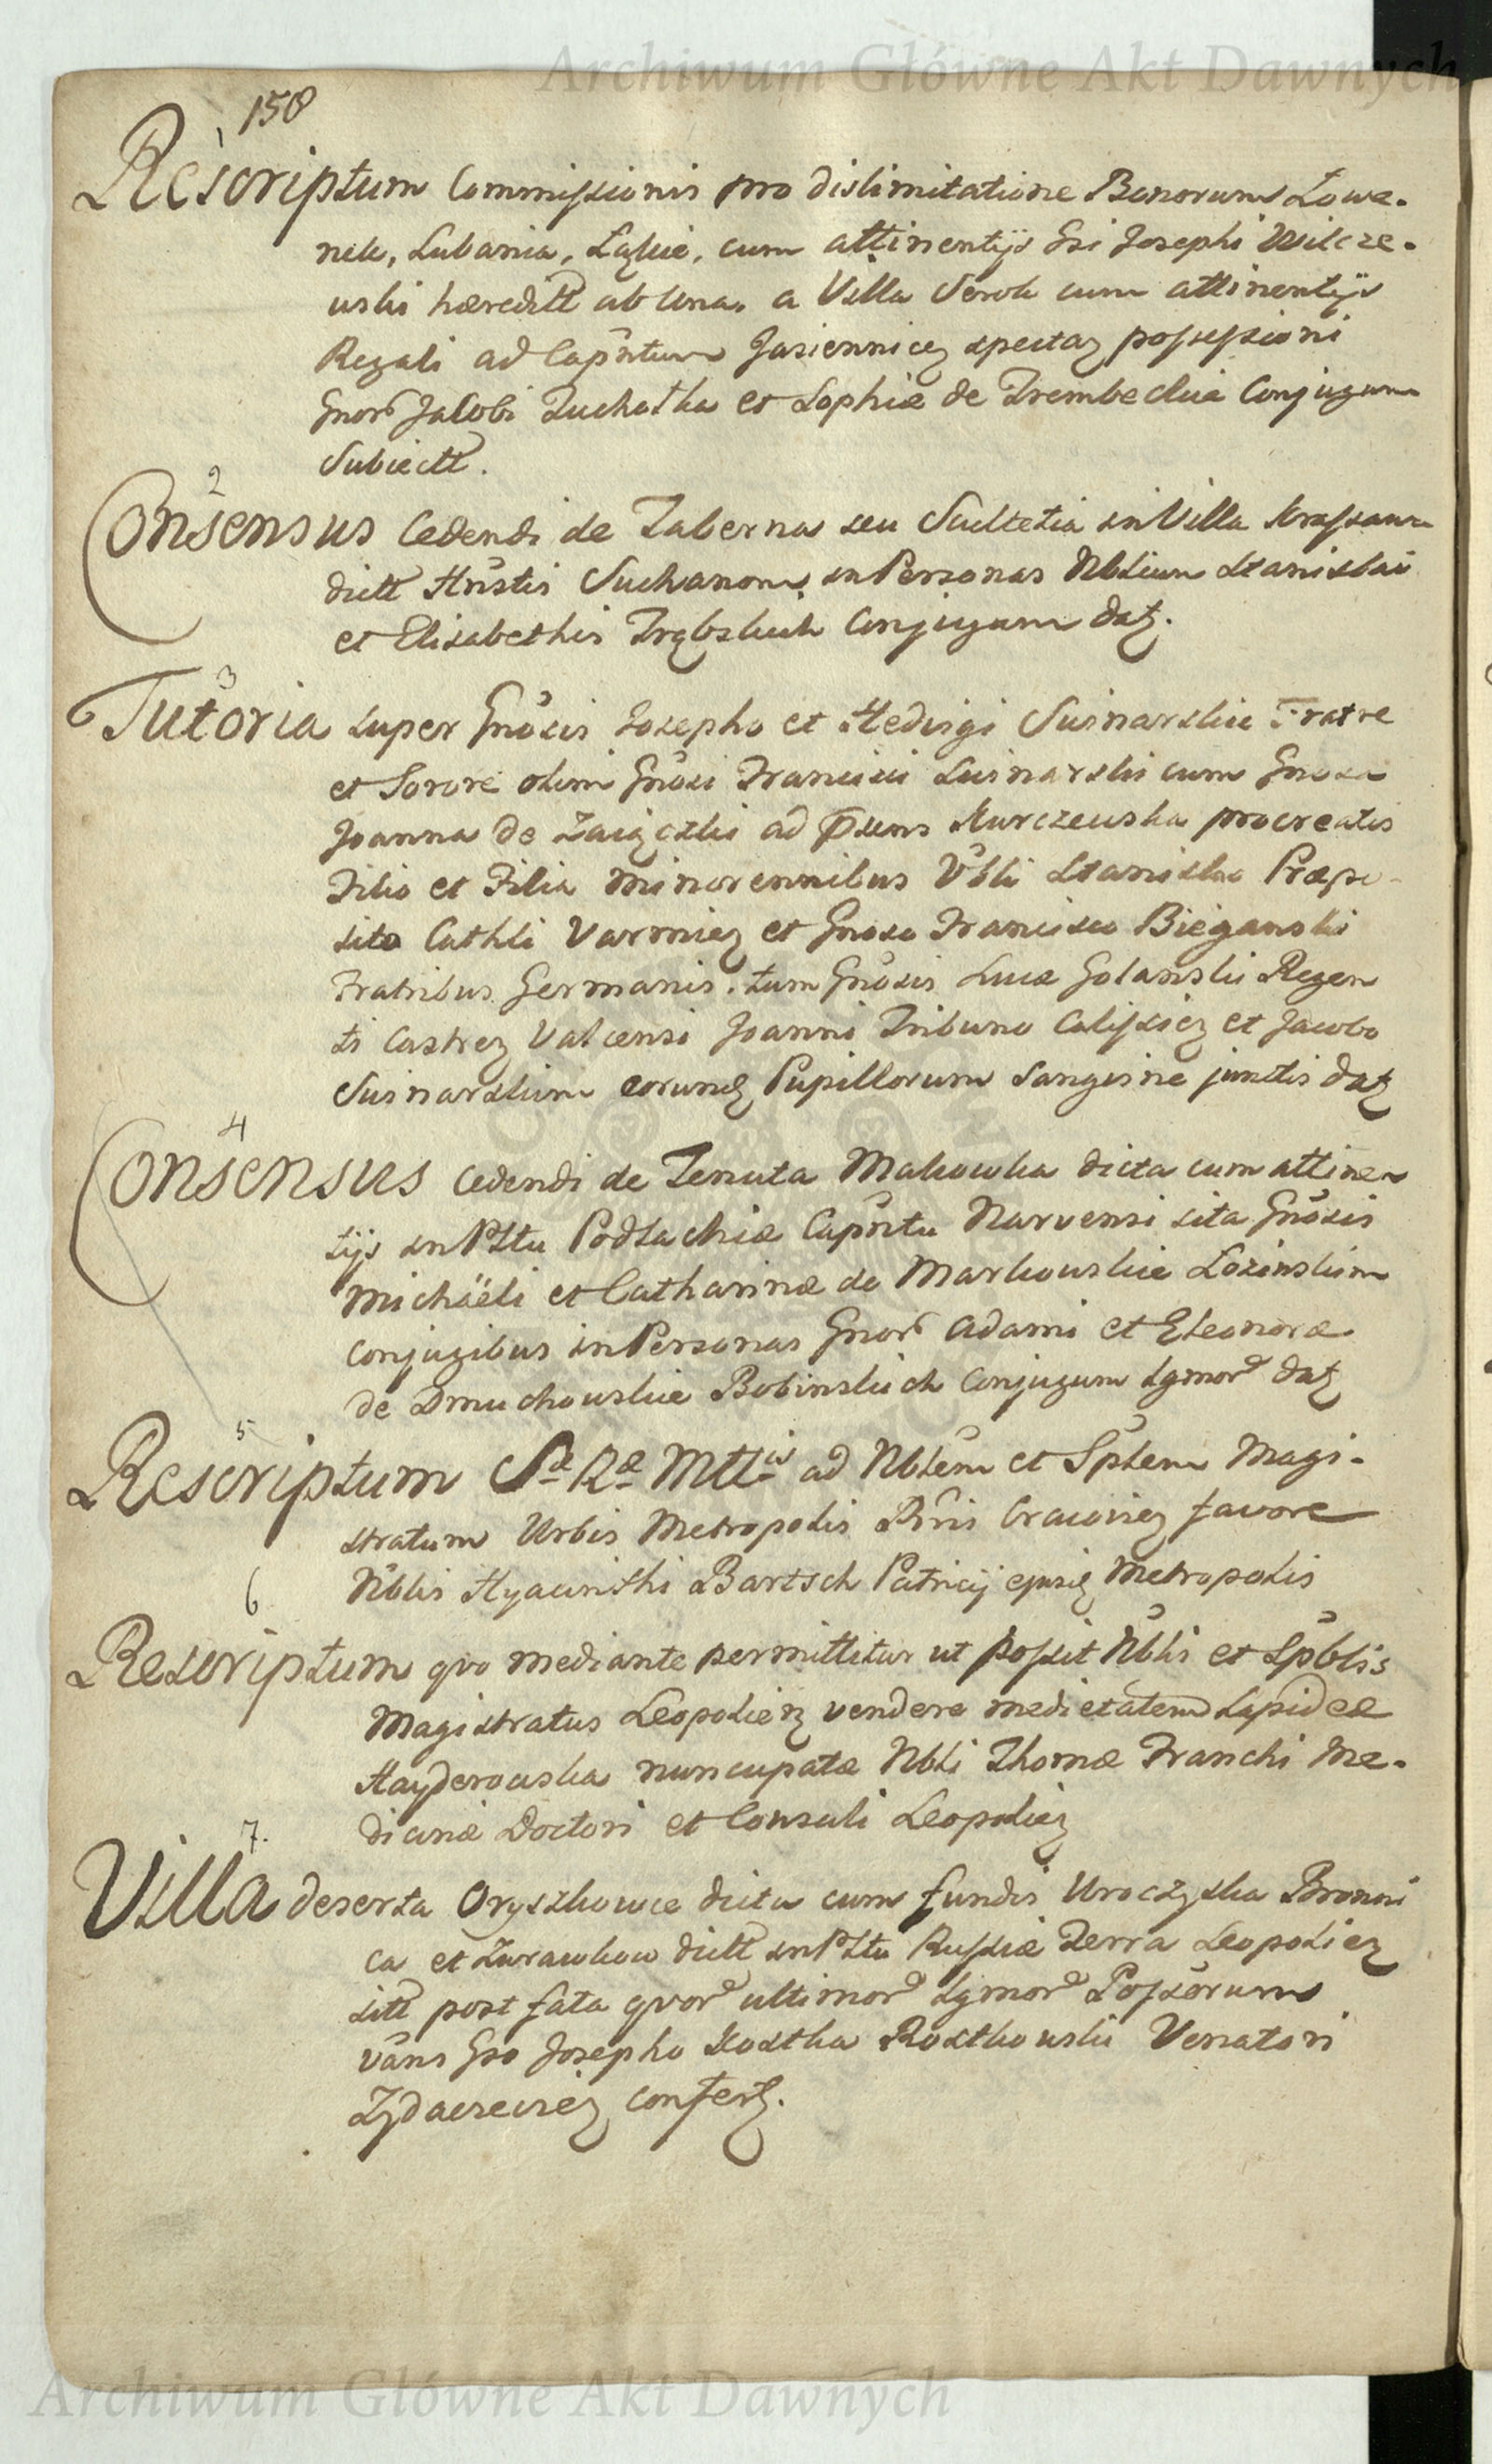 Archiwum Główne Akt Dawnych
158
1
Rescriptum Commissionis pro dislimitatione Bonorum Łowe-
nek, Lubania, Łązkie, cum attinentijs Gsi Josephi Wilcze-
wski hæreditt ab una, a Villa Serok cum attinentijs
Regali ad Capñtum Jasiennicez spectaz possessioni
Gnor Jacobi Zuchatka et Sophiæ de Trembeckie Conjugum
Subiectt.
2
Consensus Cedendi de Taberna seu Scultetia in Villa
dictt Hrustis in Personas Nblium Stanislai
et Elisabethis Conjugum datz.
3
Tutoria super Gnosis Josepho et Hedvigi Suinarskie Fratre
et Sorore olim Gnosi Francisci Suinarski cum Gnosa
Joanna de ad Psens Kurczewska procreatis
Filio et Filia minorennibus Vbli Stanislao Præpo-
sito Cathli Varmiez et Gnoso Francisco Biegański
Fratribus Germanis, tum Gnosis Lucæ Golanski Regen
ti Castrez Valcensi Joanni Tribuno Calissiez et Jacobo
Suinarskim eorundz Pupillorum Sangvine junctis datz
4
Consensus Cedendi de Tenuta Makowka dicta cum attinen
tijs in Pttu Podlachiæ Capñtu Narvensi sita Gnosis
Michaëli et Catharinæ de Markowskie Łozinskim
Conjugibus in Personas Gnor Adami et Eleonoræ
de Dmuchowskie Bobinskich Conjugum Lgmor datz
5
Rescriptum Sæ Ræ Mttis ad Nblem et Spblem Magi-
stratum Urbis Metropolis Craviez favore
Nblis Hyacinthi Bartsch Patricij ejusdz Metropolis
6
Rescriptum qvo mediante permittitur ut possit Nblis et Spblis
Magistratus Leopoliez vendere medietatem Lapideæ
Hayderowska nuncupatæ Nbli Thomæ Franchi Me-
dicinæ Doctori et Consuli Leopoliez
7.
Villa deserta Oryszkowce dicta cum fundis Uroczyska Bronni
ca et Zurawkow dictt in Pttu Russiæ Terra Leopoliez
sitt post fata qvor ultimor Lgmor Possorum
vans Gso Josepho Kostka Rostkowski Venatori
Zydaczeviez confertz.
Archiwum Główne Akt Dawnych